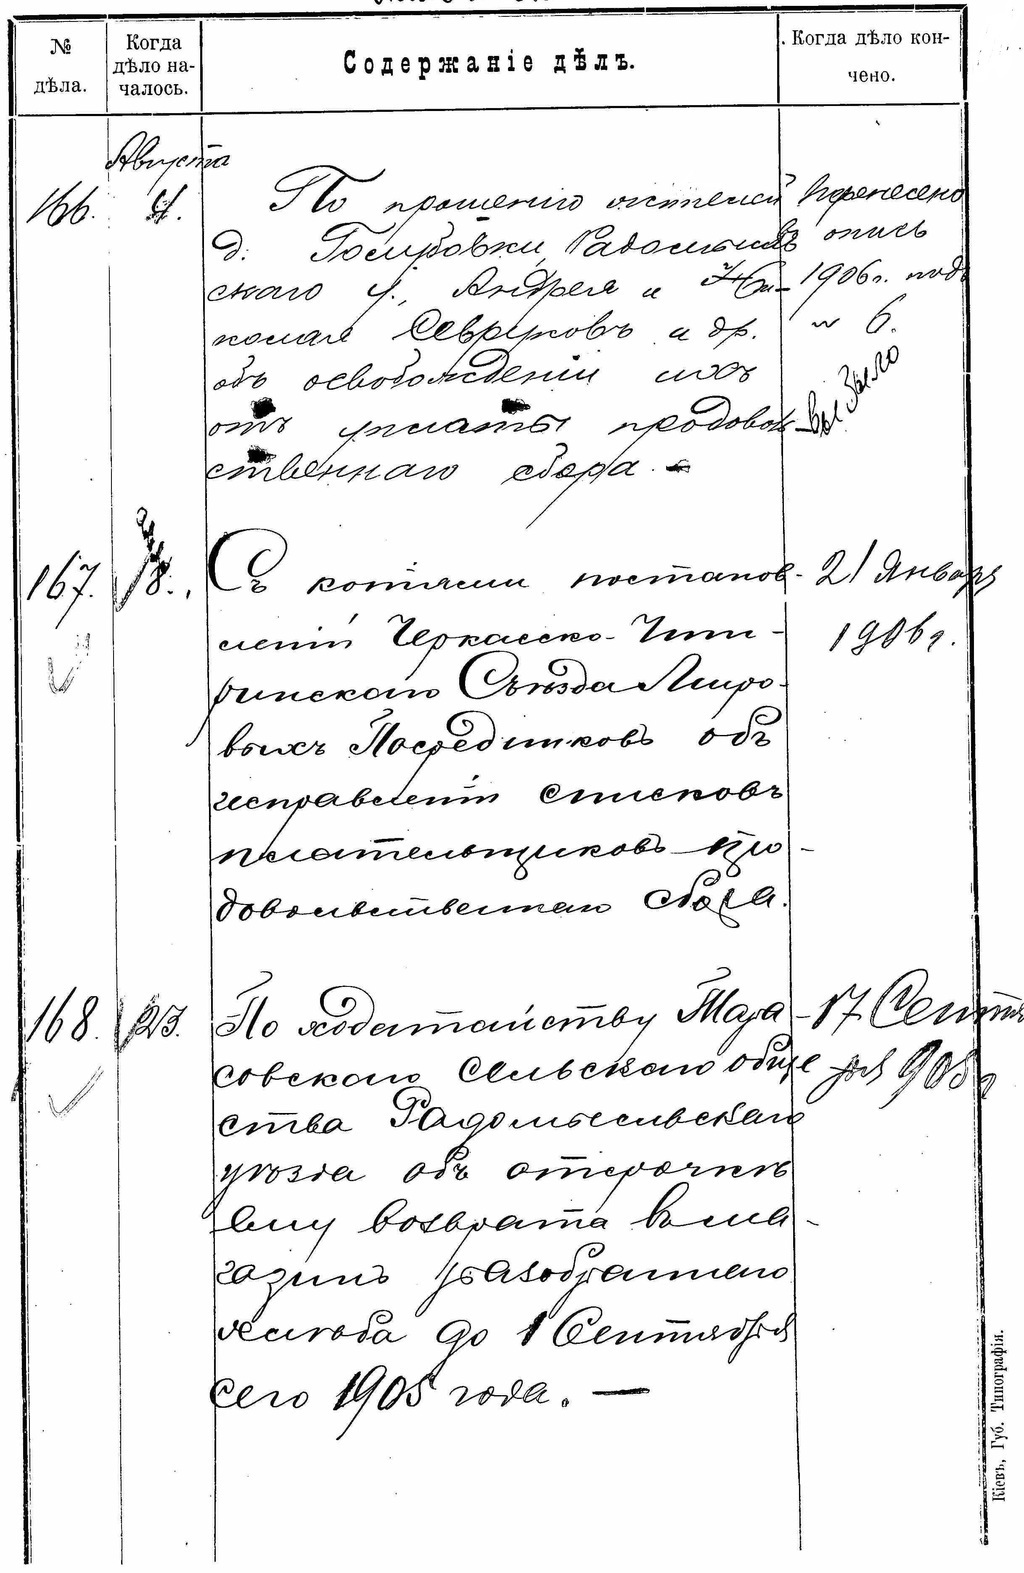 № дѣла.
Когда дѣло на-
чалось.
Содержаніе дѣлъ.
Когда дѣло кон-
чено.
Августа
166. 4. По прошенію жителей
д. Радомысль-
скаго у., Андрея и Ни-
колая и др.
объ освобожденіи ихъ
отъ уплаты продоволь-
ственнаго сбора. –
Перенесено
опись
1906 г. подъ
№ 6.
167. 18. Съ копіями постанов-
леній Черкасско-Чиги-
ринскаго Съѣзда Миро-
выхъ Посредниковъ объ
исправленіи списковъ
плательщиковъ про-
довольственнаго сбора.
21 Января
1906 г.
168. 23. По ходатайству Тара-
совскаго сельскаго обще
ства Радомысельскаго
уѣзда объ отсрочкѣ
ему возврата въ ма-
газинъ разобраннаго
хлѣба до 1 Сентября
сего 1905 года. —
17 Сентя
бря 905 г
Кіевъ, Губ. Типографія.